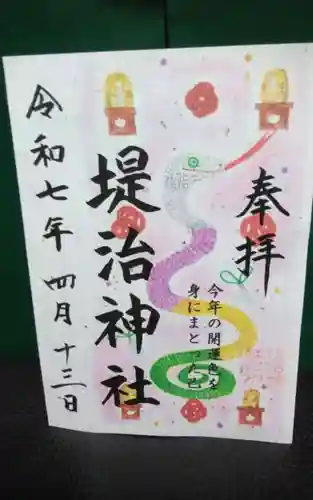 奉拝
今年の開運色を
身にまとった巳
堤治神社
令和七年 四月 十三日